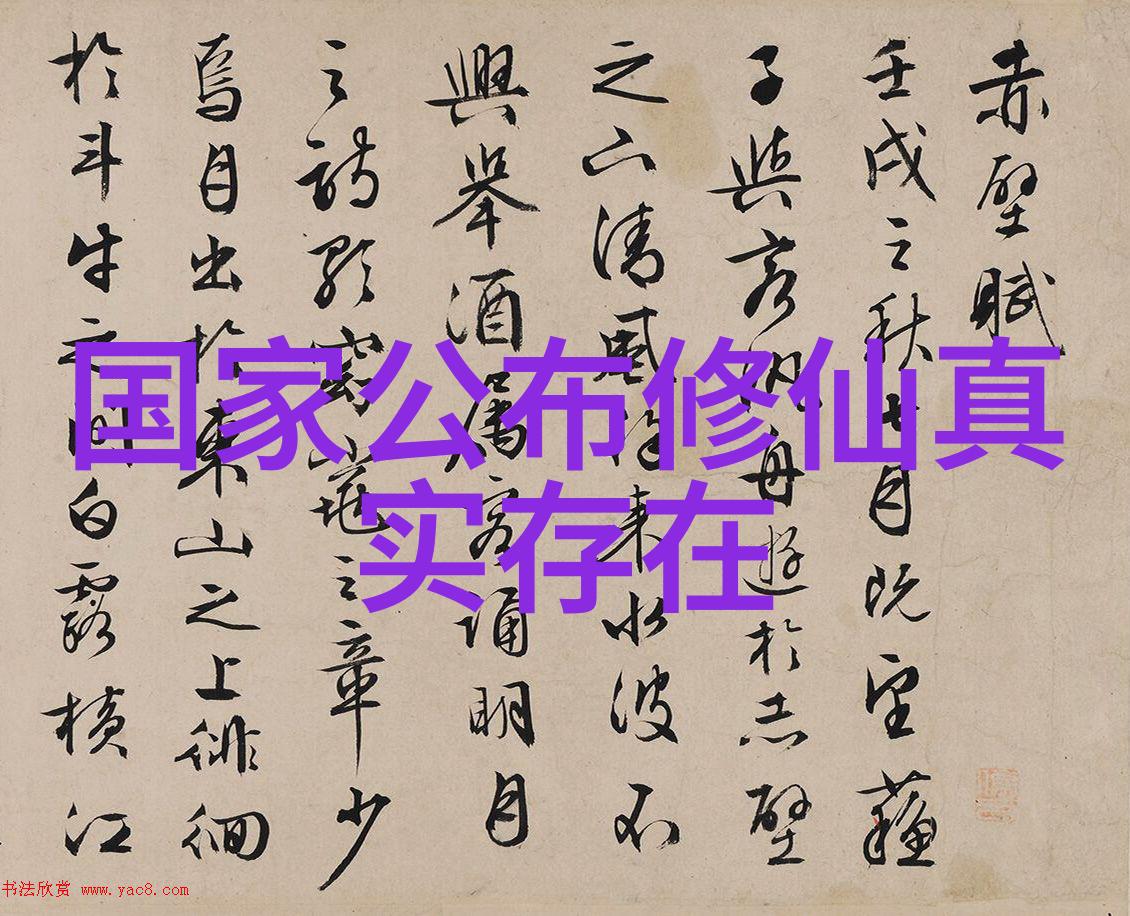 赤壁賦
壬戌之秋七月既望蘇
子與客泛舟遊於赤壁
之下清風徐來水波不
興舉酒屬客誦明月
之詩歌窈窕之章少
焉月出於東山之上徘徊
於斗牛之間白露橫江
国家公布修仙真
实存在
书法欣赏 www.yac8.com